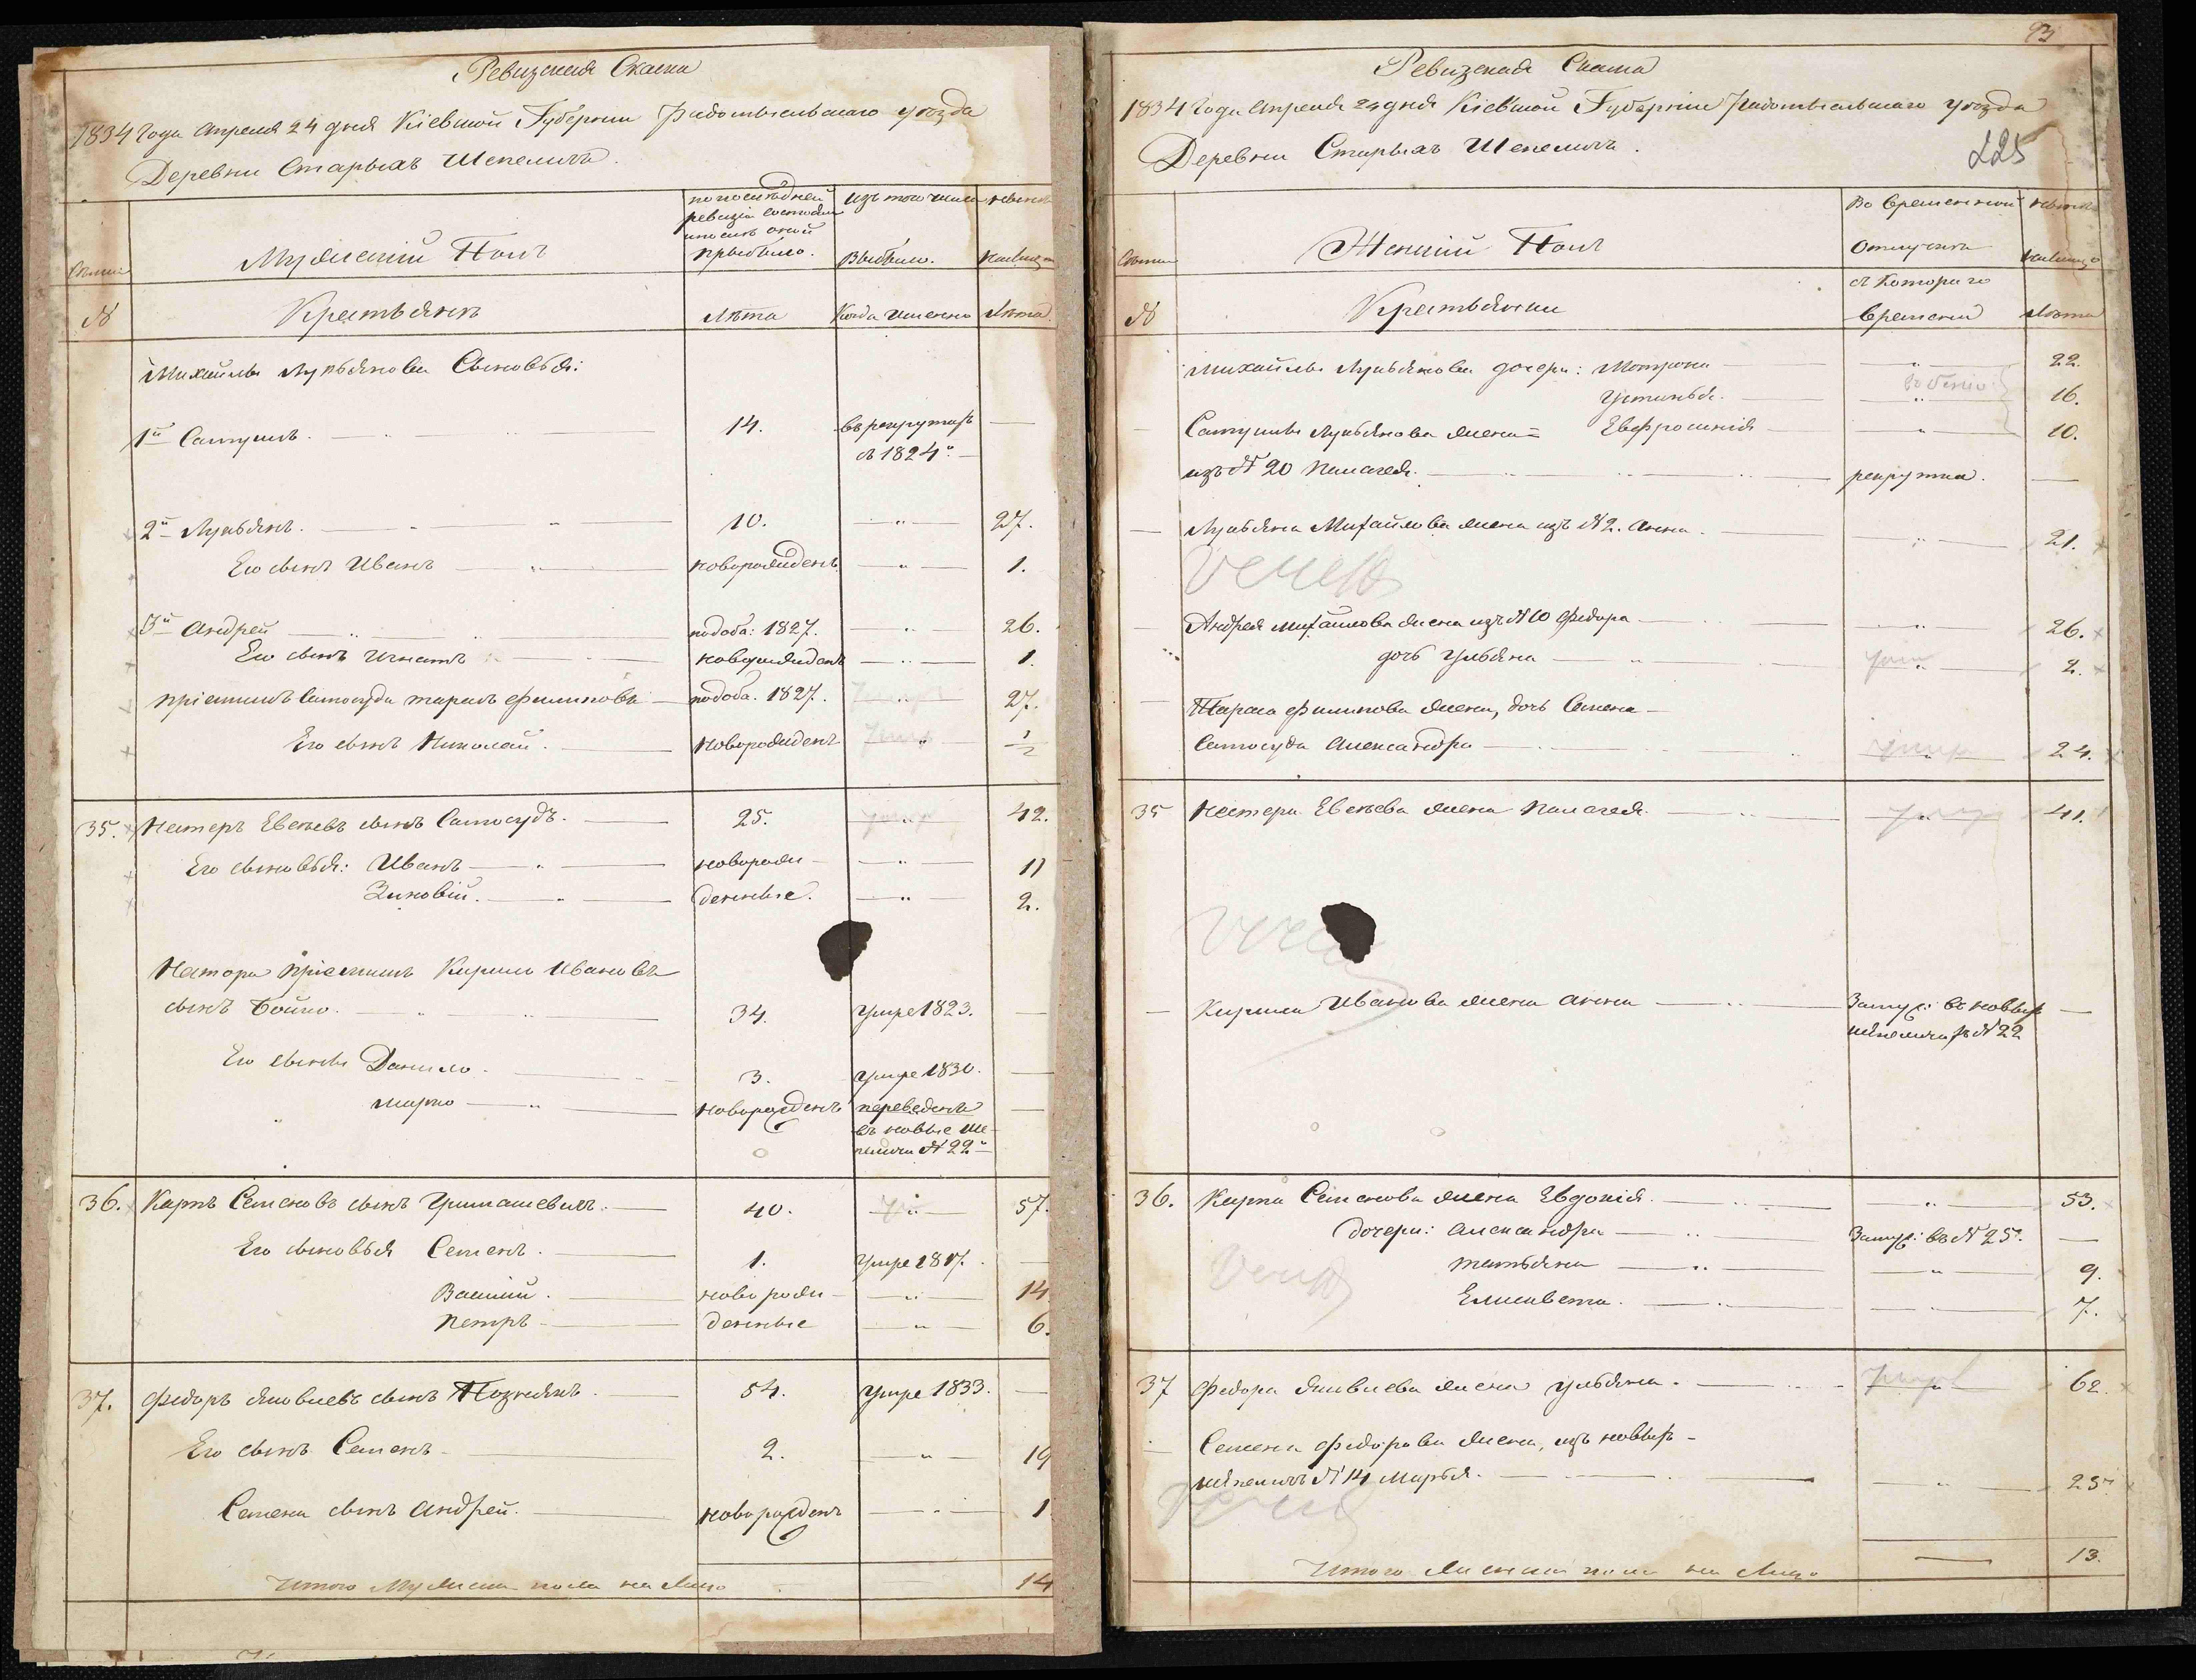 Ревизская Сказка
1834 Года Апреля 24 дня Кіевской Губерніи Радомысльскаго уѣзда
Деревни Старыхъ Шепеличъ.
Семьи
Мужескій Полъ
по последней ревизіи состояло и после оной прыбыло.
Изъ того числа Выбыло.
Ныне на лицо
№
Крестьянъ
Лѣта
Когда именно
Лѣта.
Михайлы Лукьянова Сыновья:
1й Самуилъ. 14. въ рекрутахъ
съ 1824го
2й Лукьянъ. 10. 27.
Его сынъ Иванъ новорожденъ 1.
3й Андрей подоба: 1827. 26.
Его сынъ Игнатъ новорожденъ 1.
пріемышъ Самосуда Тарасъ Филиповъ подоба. 1827. 27.
Его сынъ Николай. новорожденъ 1/2
35. Нестеръ Евсеевъ сынъ Самосудъ. 25. умре 42.
Его сыновья: Иванъ новорож- 11
Зиновій. денные. 2.
Нестора пріемышъ Кирило Ивановъ
сынъ Бойко. 34. Умре 1823.
Его сыны Данило. 3. Умре 1830.
Марко новорожденъ переведенъ
въ новые Ше-
пеличи № 22й
36. Карпъ Семеновъ сынъ Гриташевичъ. 40. 57.
Его сыновья Семенъ. 1. Умре 1817.
Василій. новорож- 14
Петръ денные 6.
37. Федоръ Яковлевъ сынъ Познякъ. 54. Умре 1833.
Его сынъ Семенъ 2. 19
Семена сынъ Андрей. новорожденъ 1
Итого Мужеска пола на лицо 14
93
Ревизская Сказка
1834 Года Апреля 24 дня Кіевской Губерніи Радомысльскаго уѣзда
225
Деревни Старыхъ Шепеличъ.
Семьи
Женскій Полъ
Во временной Отлучке
Ныне на лицо
№
Крестьянки
съ Котораго времени
Лѣта
Михайлы Лукьянова дочери: Мотрона 22.
Устинья. 16.
Самуилы Лукьянова жена Евфросинія 10.
изъ № 20 Палагея. рекрутка.
Лукьяна Михайлова жена изъ № 2. Анна. 21.
Андрея Михайлова жена изъ № 10 Федора 26.
дочь Ульяна 2.
Тараса Филипова жена, дочь Семена
Самосуда Александра 24.
35 Нестера Евсеева жена Палагея. 41.
Кирила Иванова жена Анна Замуж: въ новыхъ
шепеличахъ № 22
36. Карпа Семенова жена Евдокія. 53.
дочери: Александра Замуж: въ № 25.
Татьяна 9.
Елисавета. 7.
37 Федора Яковлева жена Ульяна. 62.
Семена Федорова жена, изъ новыхъ
шепеличъ № 14 Марья. 25
Итого женска пола на лицо 13.